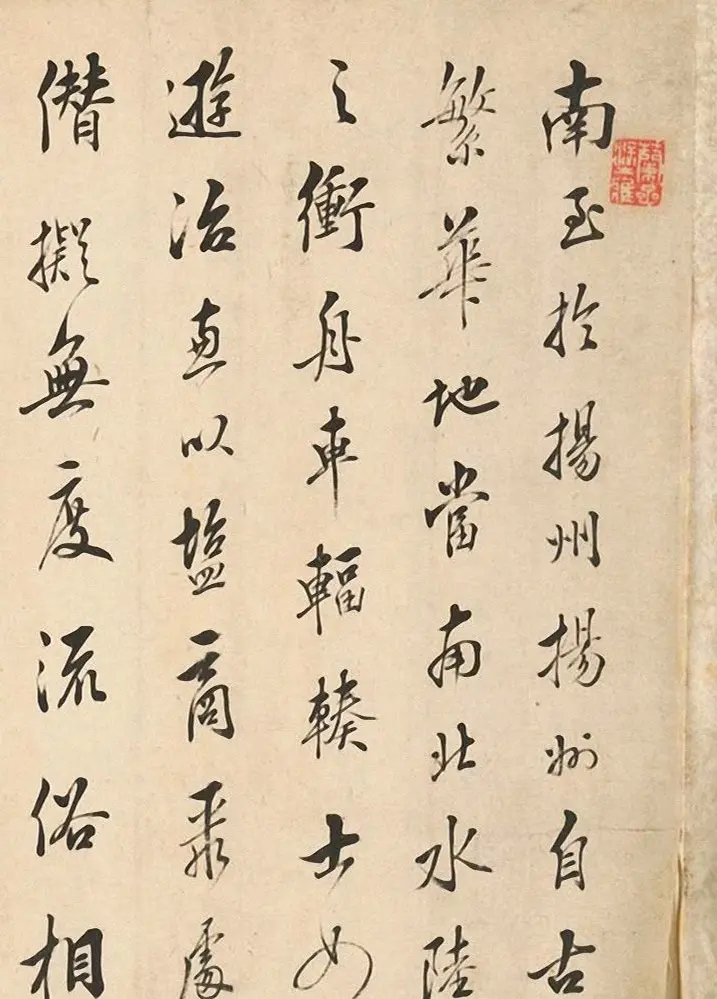 南至於揚州揚州自古
繁華地當南北水陸
之衝舟車輻輳士女
遊冶直以鹽商聚處
僭擬無度流俗相